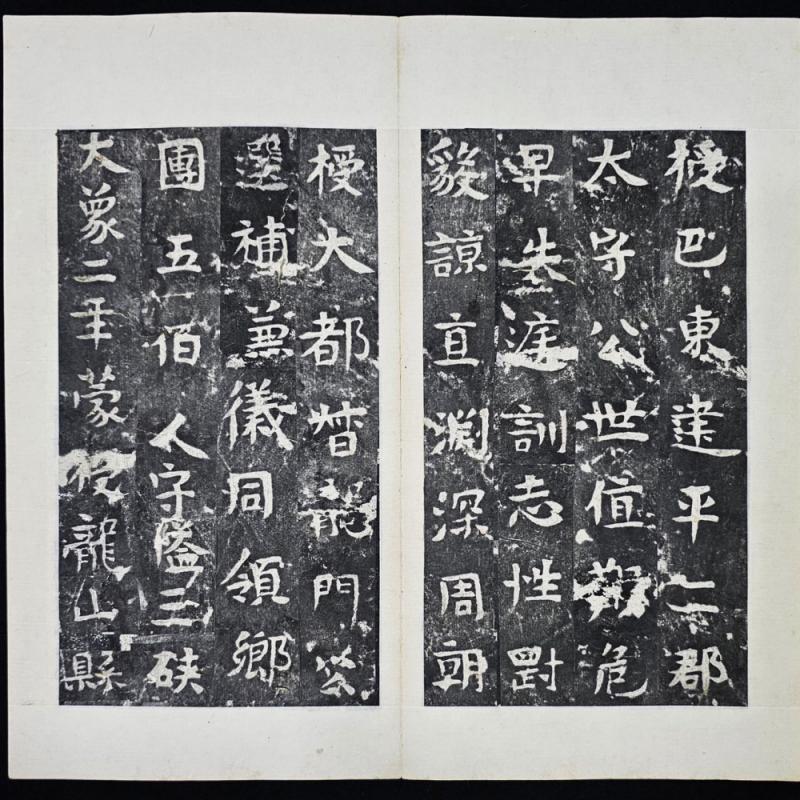 授巴東建平二郡
太守公世值艱危
早失庭訓志性剛
毅諒直淵深周朝
授大都督龍門
選補兼儀同領鄉
團五佰人守隘三硤
大象二年蒙授龍山縣